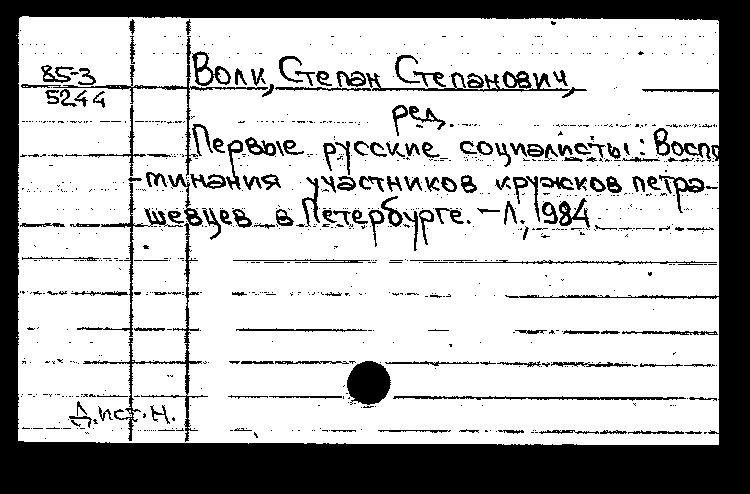 85-3
5244
Волк, Степан Степанович,
ред.
Первые русские социалисты: Воспо-
минания участников кружков петра-
шевцев в Петербурге. – Л., 1984.
Д.ист.н.